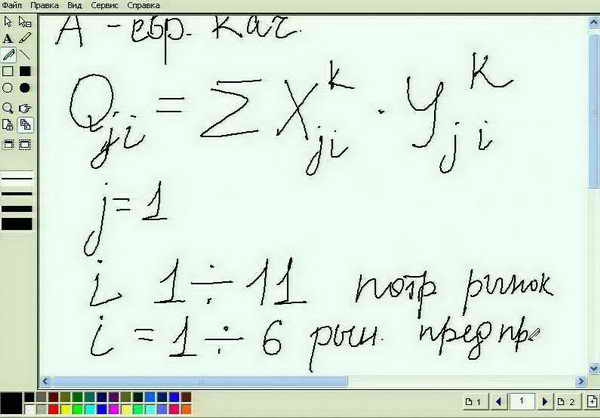 Файл Правка Вид Сервис Справка
А - евр. кач.
Qji = Σ Xji^k · Yji^k
j = 1
i 1 ÷ 11 потр рынок
i = 1 ÷ 6 рын. предпр
1 1 2